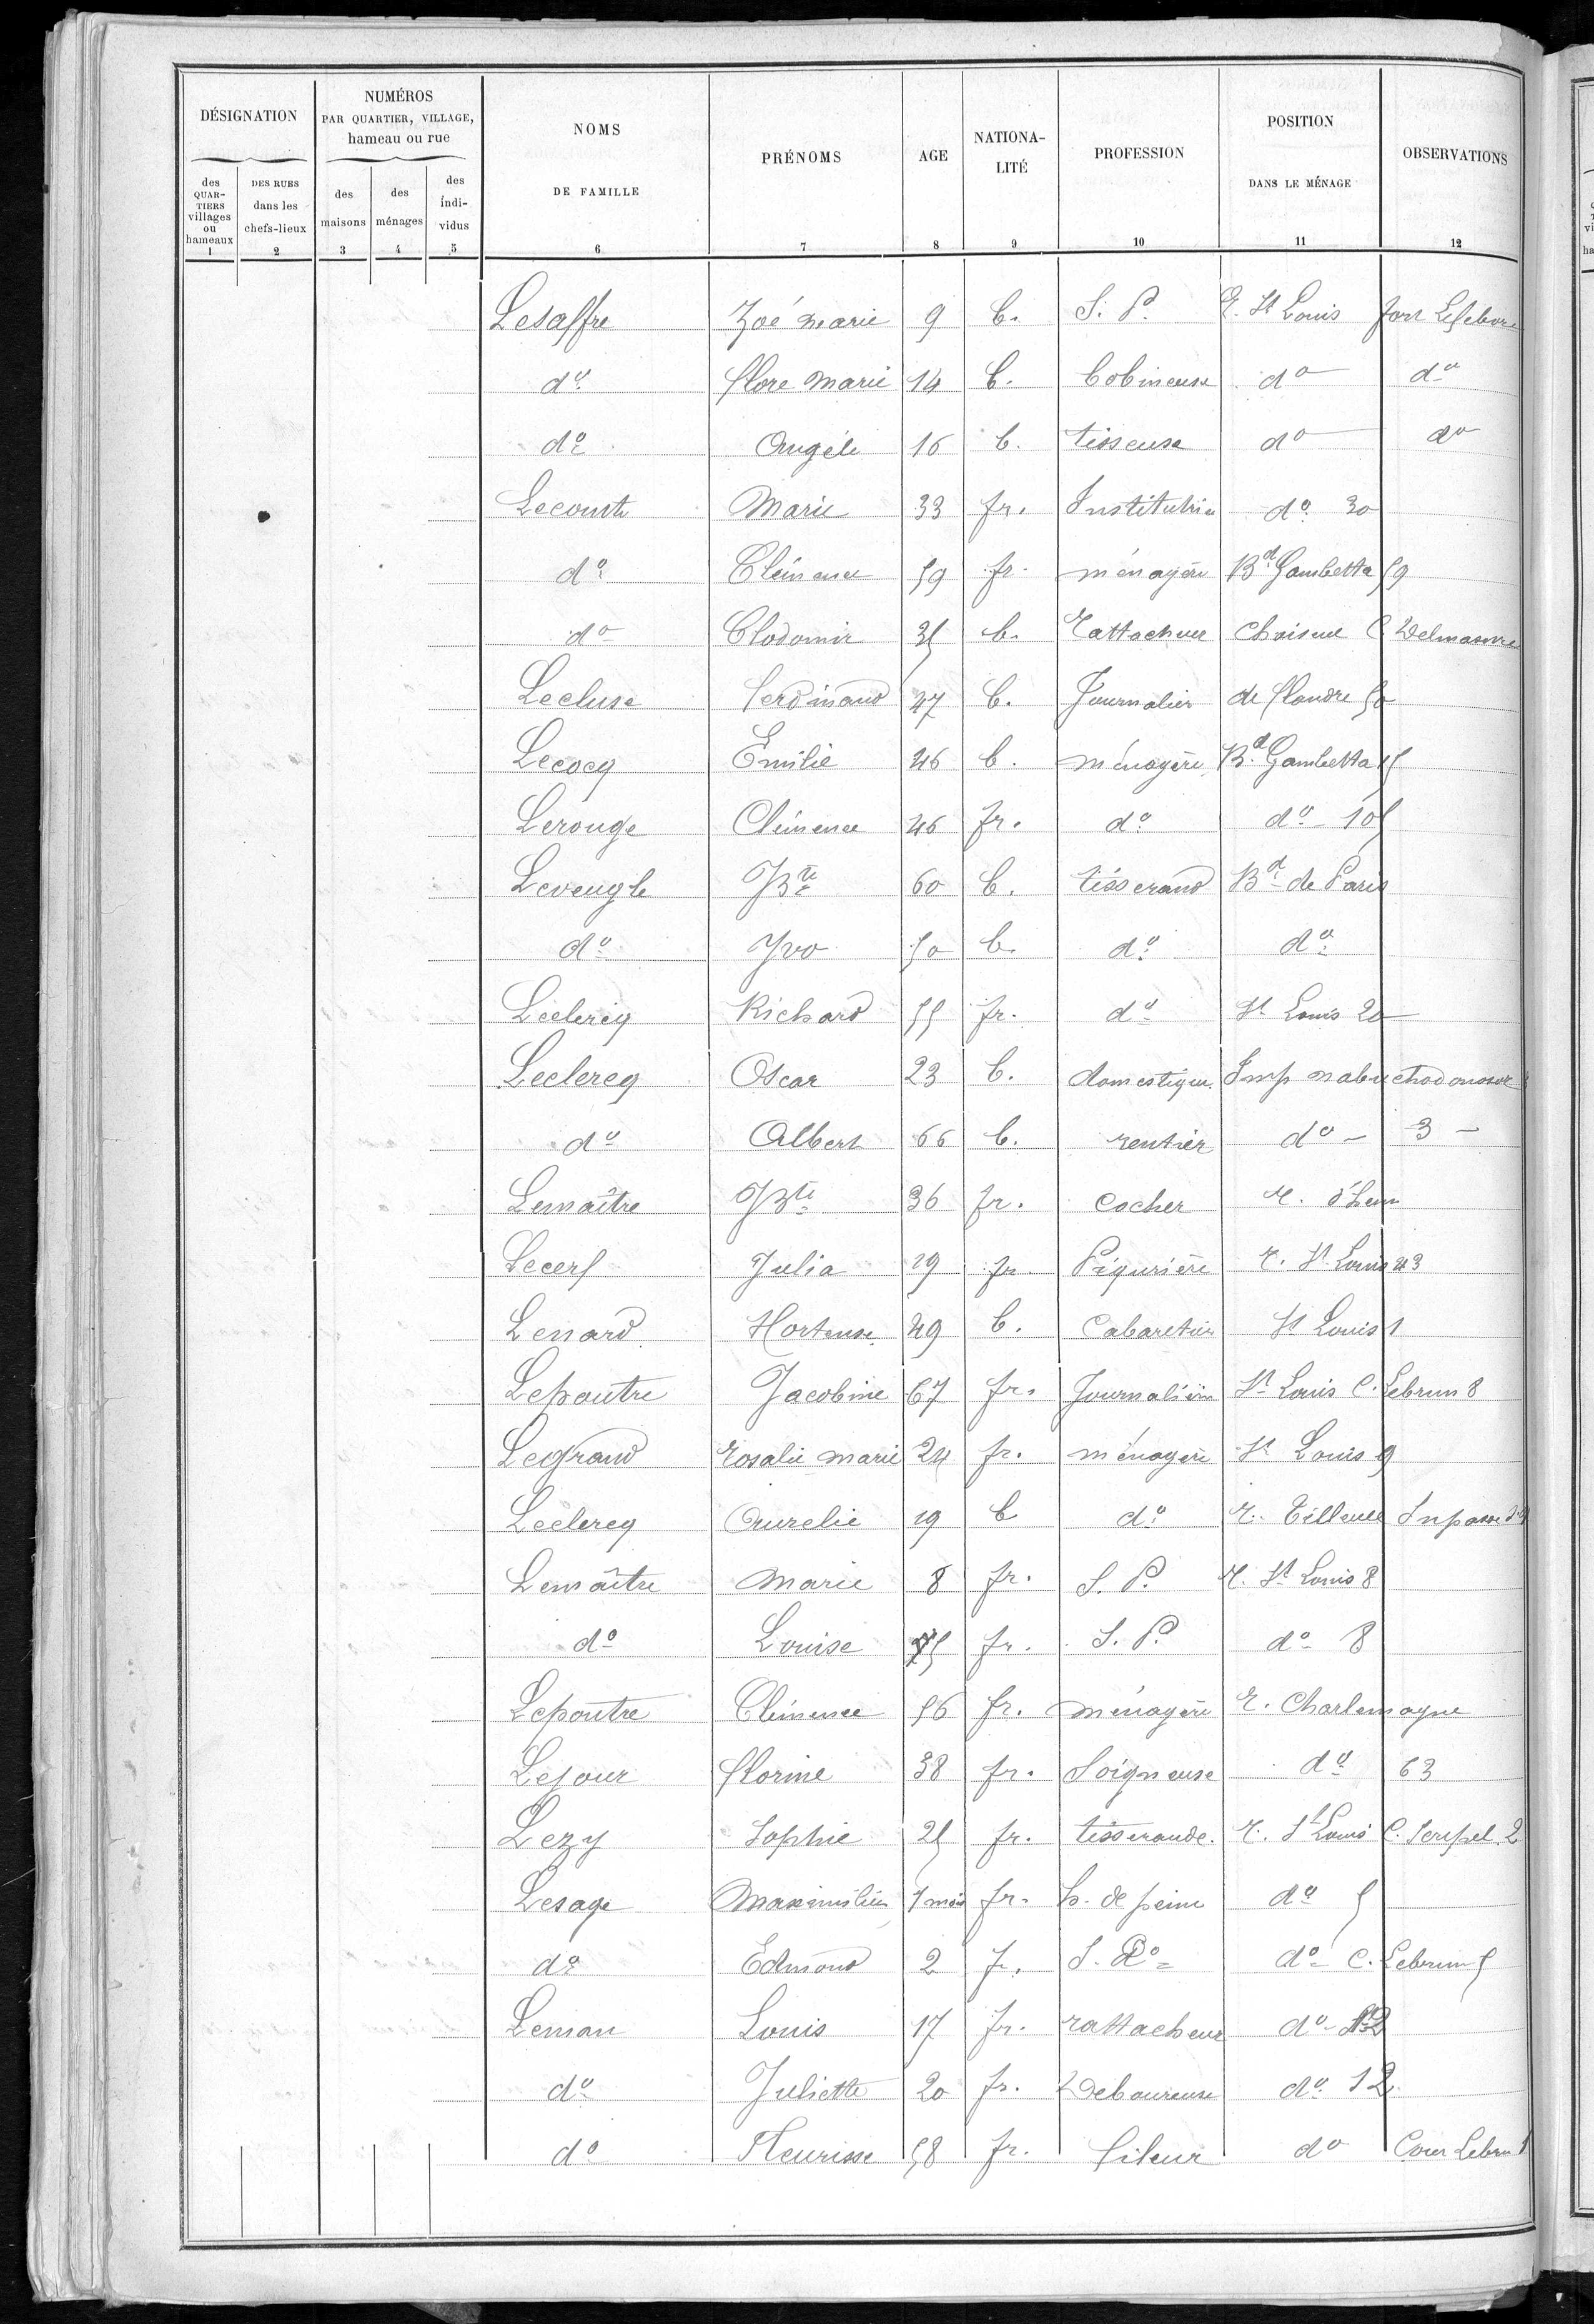 DÉSIGNATION
NUMÉROS
PAR QUARTIER, VILLAGE,
hameau ou rue
NOMS
DE FAMILLE
PRÉNOMS
AGE
NATIONA-
LITÉ
PROFESSION
POSITION
DANS LE MÉNAGE
OBSERVATIONS
des
QUAR-
TIERS
villages
ou
hameaux
DES RUES
dans les
chefs-lieux
des
maisons
des
ménages
des
indi-
vidus
1 2 3 4 5 6 7 8 9 10 11 12
Lesaffre Zoé marie 9 b. S. P. R. St Louis fort Lefebvre
do flore Marie 14 b. bobineuse do do
do Angèle 16 b. tisseuse do do
Lecomte Marie 33 fr. Institutrice do 30
do Clémence 59 fr. ménagère Bd Gambetta 59
do Clodomir 35 b. Rattacheur Choiseul C. Delmasure
Lecluse ferdinand 47 b. Journalier de flandre 50
Lecocq Emilie 46 b. ménagère Bd Gambetta 15
Lerouge Clémence 46 fr. do do 105
Leveugle JBte 60 b. tisserand Bd de Paris
do Yvo 50 b. do do
Leclercq Richard 55 fr. do St Louis 20
Leclercq Oscar 23 b. domestique Imp nabuchodonosor
do Albert 66 b. rentier do - 3 -
Lemaître JBte 36 fr. Cocher r. d'hem
Lecerf Julia 19 fr. Piqurière r. St Louis 43
Lenard Hortense 49 b. Cabaretier St Louis 1
Lepoutre Jacobine 67 fr. Journalière St Louis C. Lebrun 8
Legrand Rosalie marie 24 fr. ménagère St Louis 9
Leclercq Aurelie 19 b do r. Tilleul Impasse
Lemaître Marie 8 fr. S. P. r. St Louis 8
do Louise 75 fr. S. P. do 8
Lepoutre Clémence 56 fr. ménagère r. Charlemagne
Lejour florine 38 fr. Soigneuse do 63
Lezy Sophie 25 fr. tisserande r. St Louis C. Scrépel 2
Lesage Maximilien 7 mois fr. h. de peine do 5
do Edmond 2 fr. S. Po do C. Lebrun 5
Leman Louis 17 fr. rattacheur do 12
do Juliette 20 fr. Deboureuse do 12
do Fleurisse 58 fr. fileur do Cour Lebrun 1